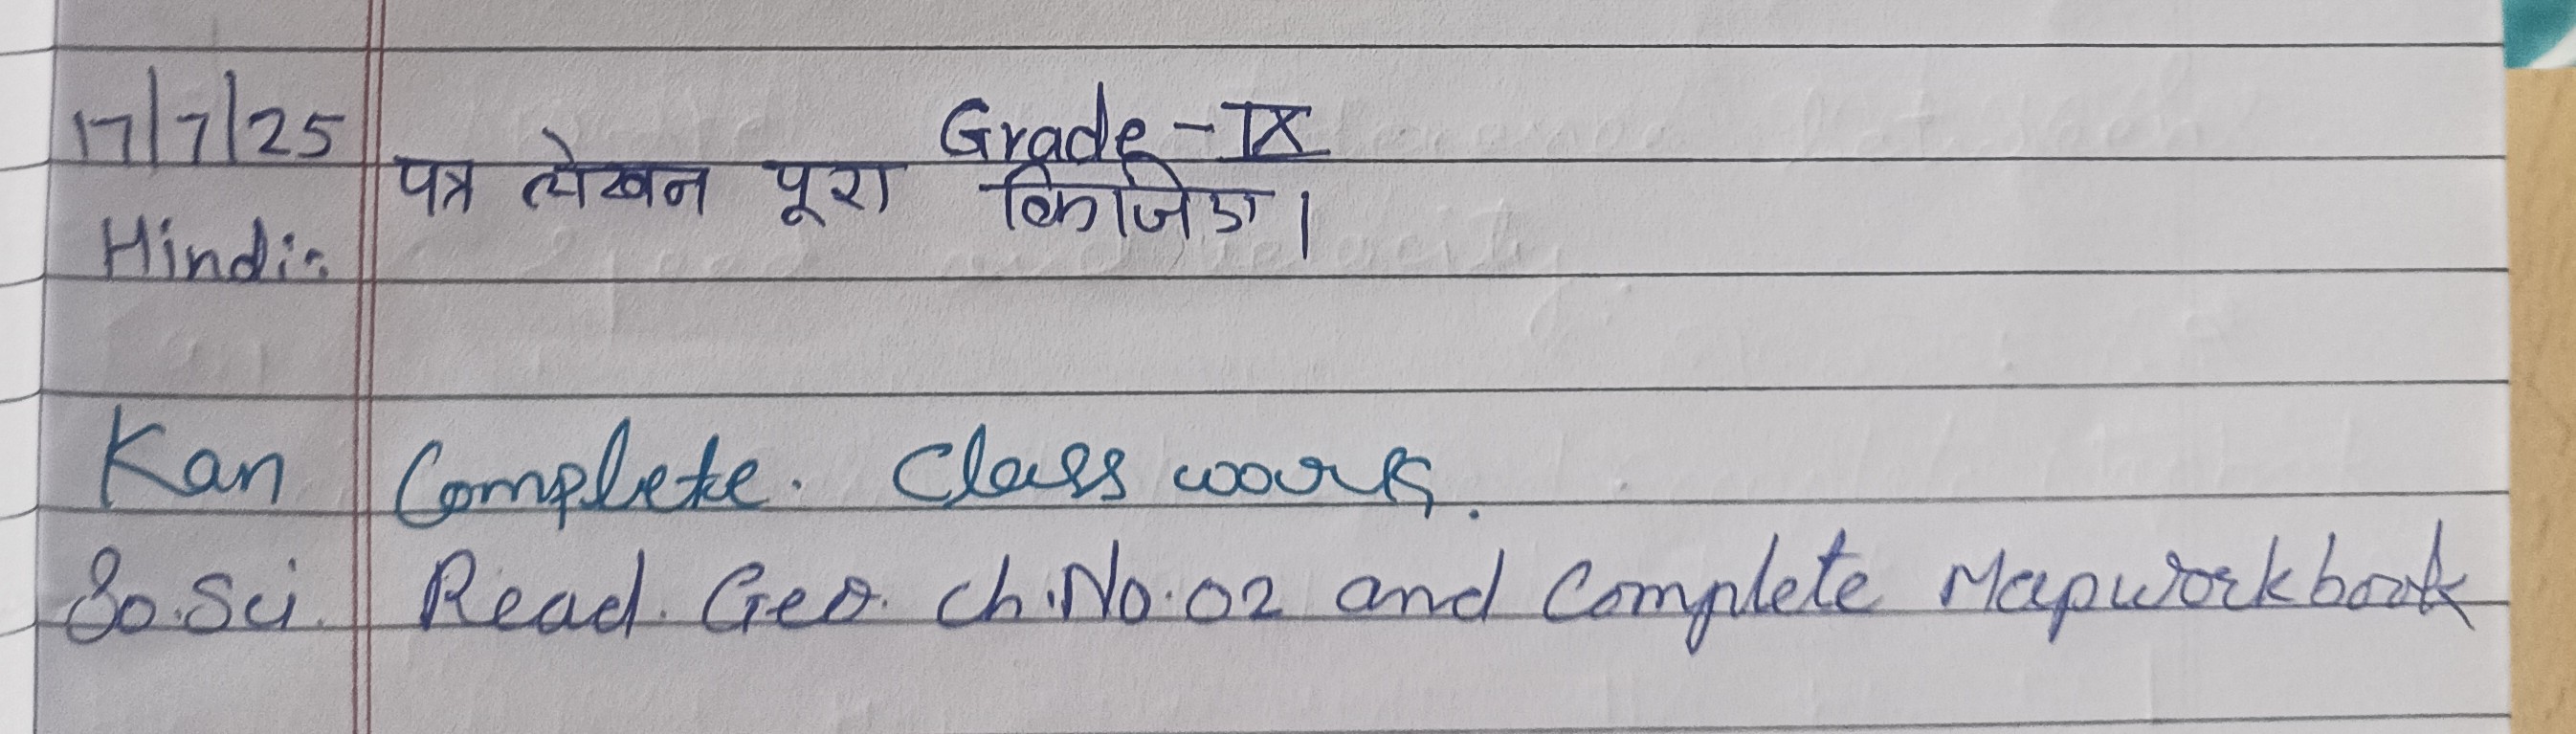 17/7/25 Grade - IX
Hindi:- पत्र लेखन पूरा किजिए।
Kan Complete. Class work.
So.Sci. Read. Geo. ch.No.02 and Complete Mapworkbook